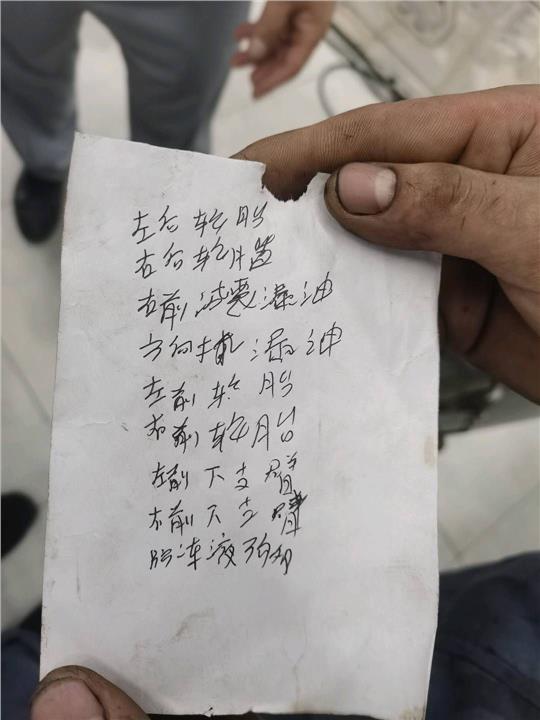 左后轮胎
右后轮胎
右前减震漏油
方向机漏油
左前轮胎
右前轮胎
左前下支臂
右前下支臂
防冻液